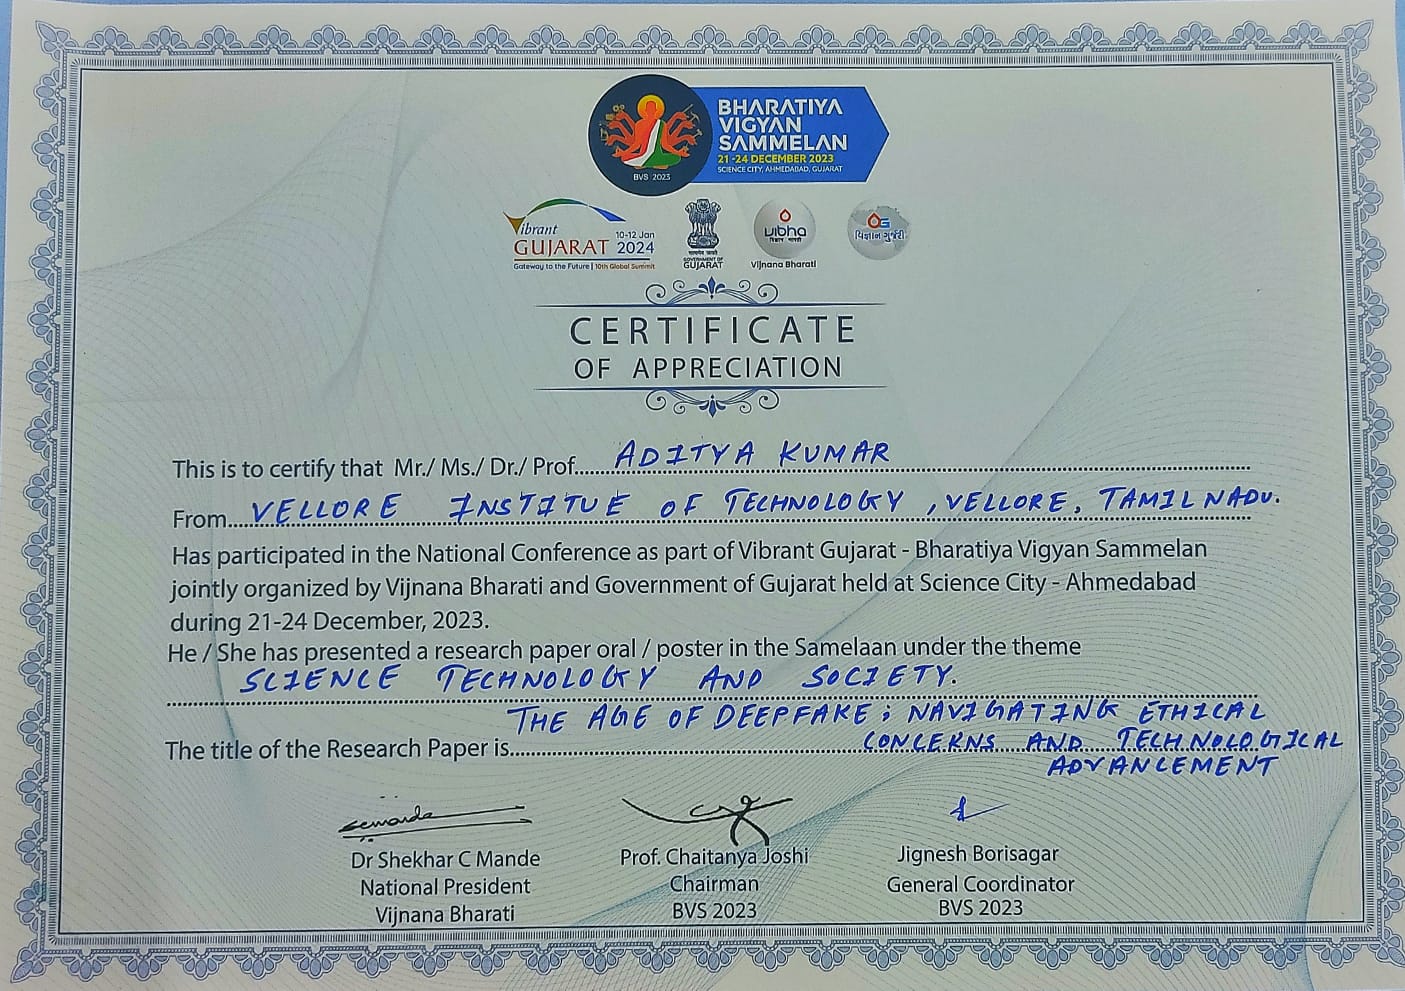 BHARATIYA
VIGYAN
SAMMELAN
21-24 DECEMBER 2023
SCIENCE CITY, AHMEDABAD, GUJARAT
BVS 2023
Vibrant
GUJARAT
10-12 Jan
2024
Gateway to the Future | 10th Global Summit
सत्यमेव जयते
GOVERNMENT OF
GUJARAT
vibha
विज्ञान भारती
Vijnana Bharati
વિજ્ઞાન ગુર્જરી
CERTIFICATE
OF APPRECIATION
This is to certify that Mr./ Ms./ Dr./ Prof..... ADITYA KUMAR
From.... VELLORE INSTITUE OF TECHNOLOGY , VELLORE, TAMIL NADU.
Has participated in the National Conference as part of Vibrant Gujarat - Bharatiya Vigyan Sammelan
jointly organized by Vijnana Bharati and Government of Gujarat held at Science City - Ahmedabad
during 21-24 December, 2023.
He / She has presented a research paper oral / poster in the Samelaan under the theme
SCIENCE TECHNOLOGY AND SOCIETY.
THE AGE OF DEEPFAKE; NAVIGATING ETHICAL
The title of the Research Paper is.... CONCERNS AND TECHNOLOGICAL
ADVANCEMENT
Dr Shekhar C Mande
National President
Vijnana Bharati
Prof. Chaitanya Joshi
Chairman
BVS 2023
Jignesh Borisagar
General Coordinator
BVS 2023